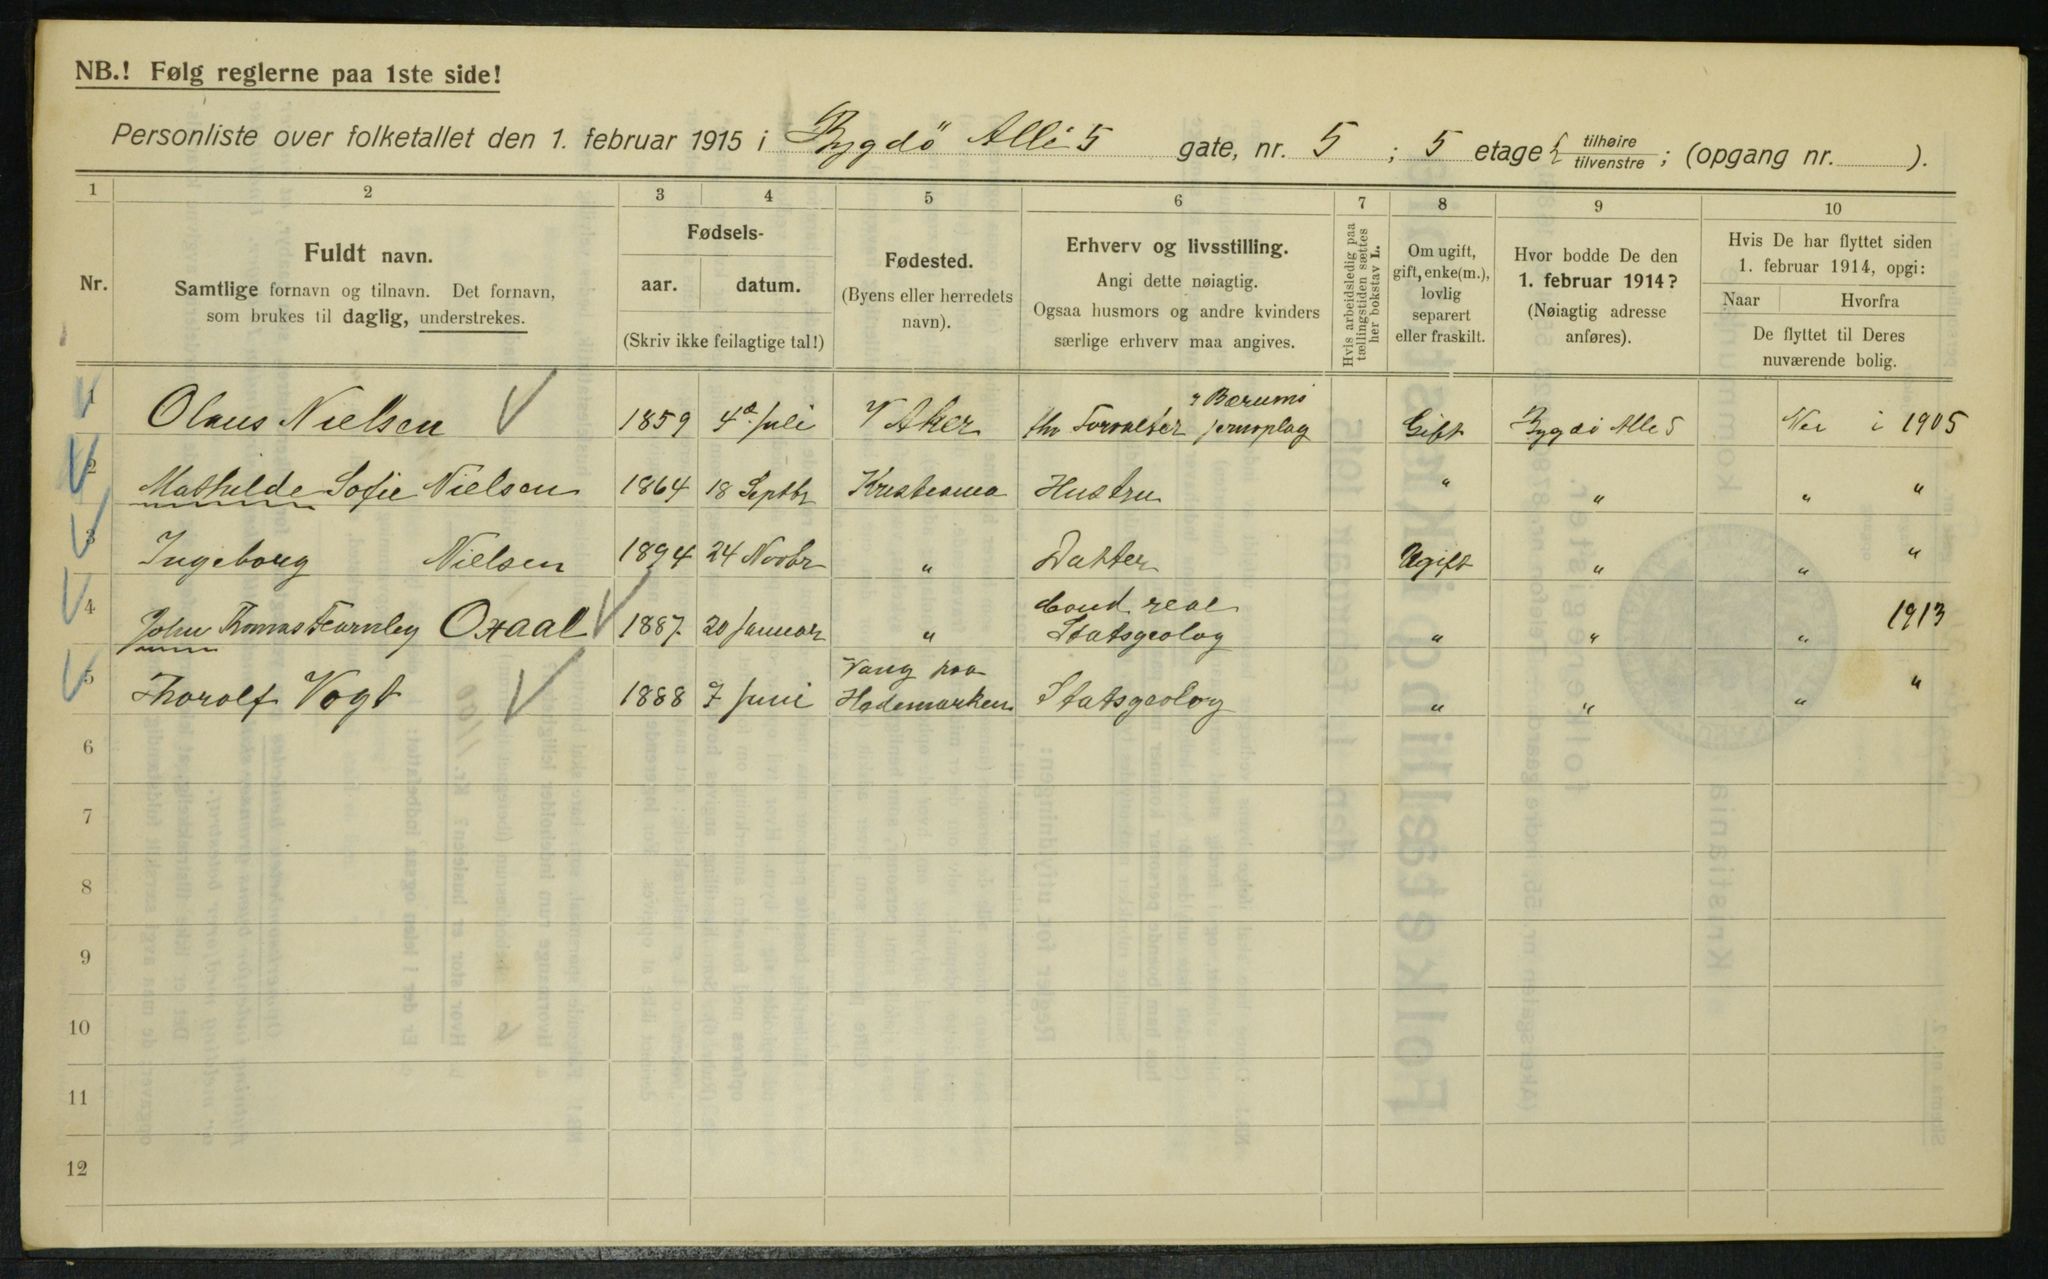 NB.! Følg reglerne paa 1ste side!
Personliste over folketallet den 1. februar 1915 i Bygdö Allé 5 gate, nr. 5 ; 5 etage tilhøire tilvenstre ; (opgang nr. ).
1 2 3 4 5 6 7 8 9 10
Nr.
Fuldt navn.
Samtlige fornavn og tilnavn. Det fornavn,
som brukes til daglig, understrekes.
Fødsels-
aar. datum.
(Skriv ikke feilagtige tal!)
Fødested.
(Byens eller herredets
navn).
Erhverv og livsstilling.
Angi dette nøiagtig.
Ogsaa husmors og andre kvinders
særlige erhverv maa angives.
Hvis arbeidsledig paa
tællingstiden sættes
her bokstav L.
Om ugift,
gift, enke(m.),
lovlig
separert
eller fraskilt.
Hvor bodde De den
1. februar 1914?
(Nøiagtig adresse
anføres).
Hvis De har flyttet siden
1. februar 1914, opgi:
Naar Hvorfra
De flyttet til Deres
nuværende bolig.
1 Olaus Nielsen 1859 4de Juli V Aker Forvalter v Bærums Gift Bygdö Alle 5 Nei i 1905
2 Mathilde Sofie Nielsen 1864 18 Septbr Kristiania Hustru " " " "
3 Ingeborg Nielsen 1894 24 Novbr " Datter Ugift " " "
4 John Thomas Fearnley Oxaal 1887 20 Januar " Cand. real Statsgeolog " " " 1913
5 Thorolf Vogt 1888 7 Juni Vang paa Hedemarken Statsgeolog " " " "
6
7
8
9
10
11
12